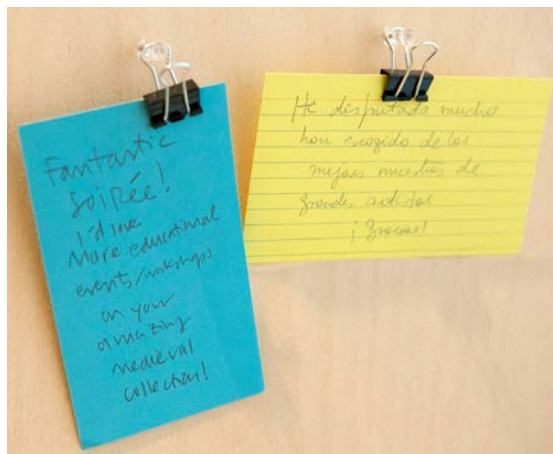 Fantastic
Soirée!
I'd love
More educational
events/workshops
on your
amazing
medieval
collection!
He disfrutado mucho
han escogido de los
mejores muestras de
grandes artistas
¡Gracias!